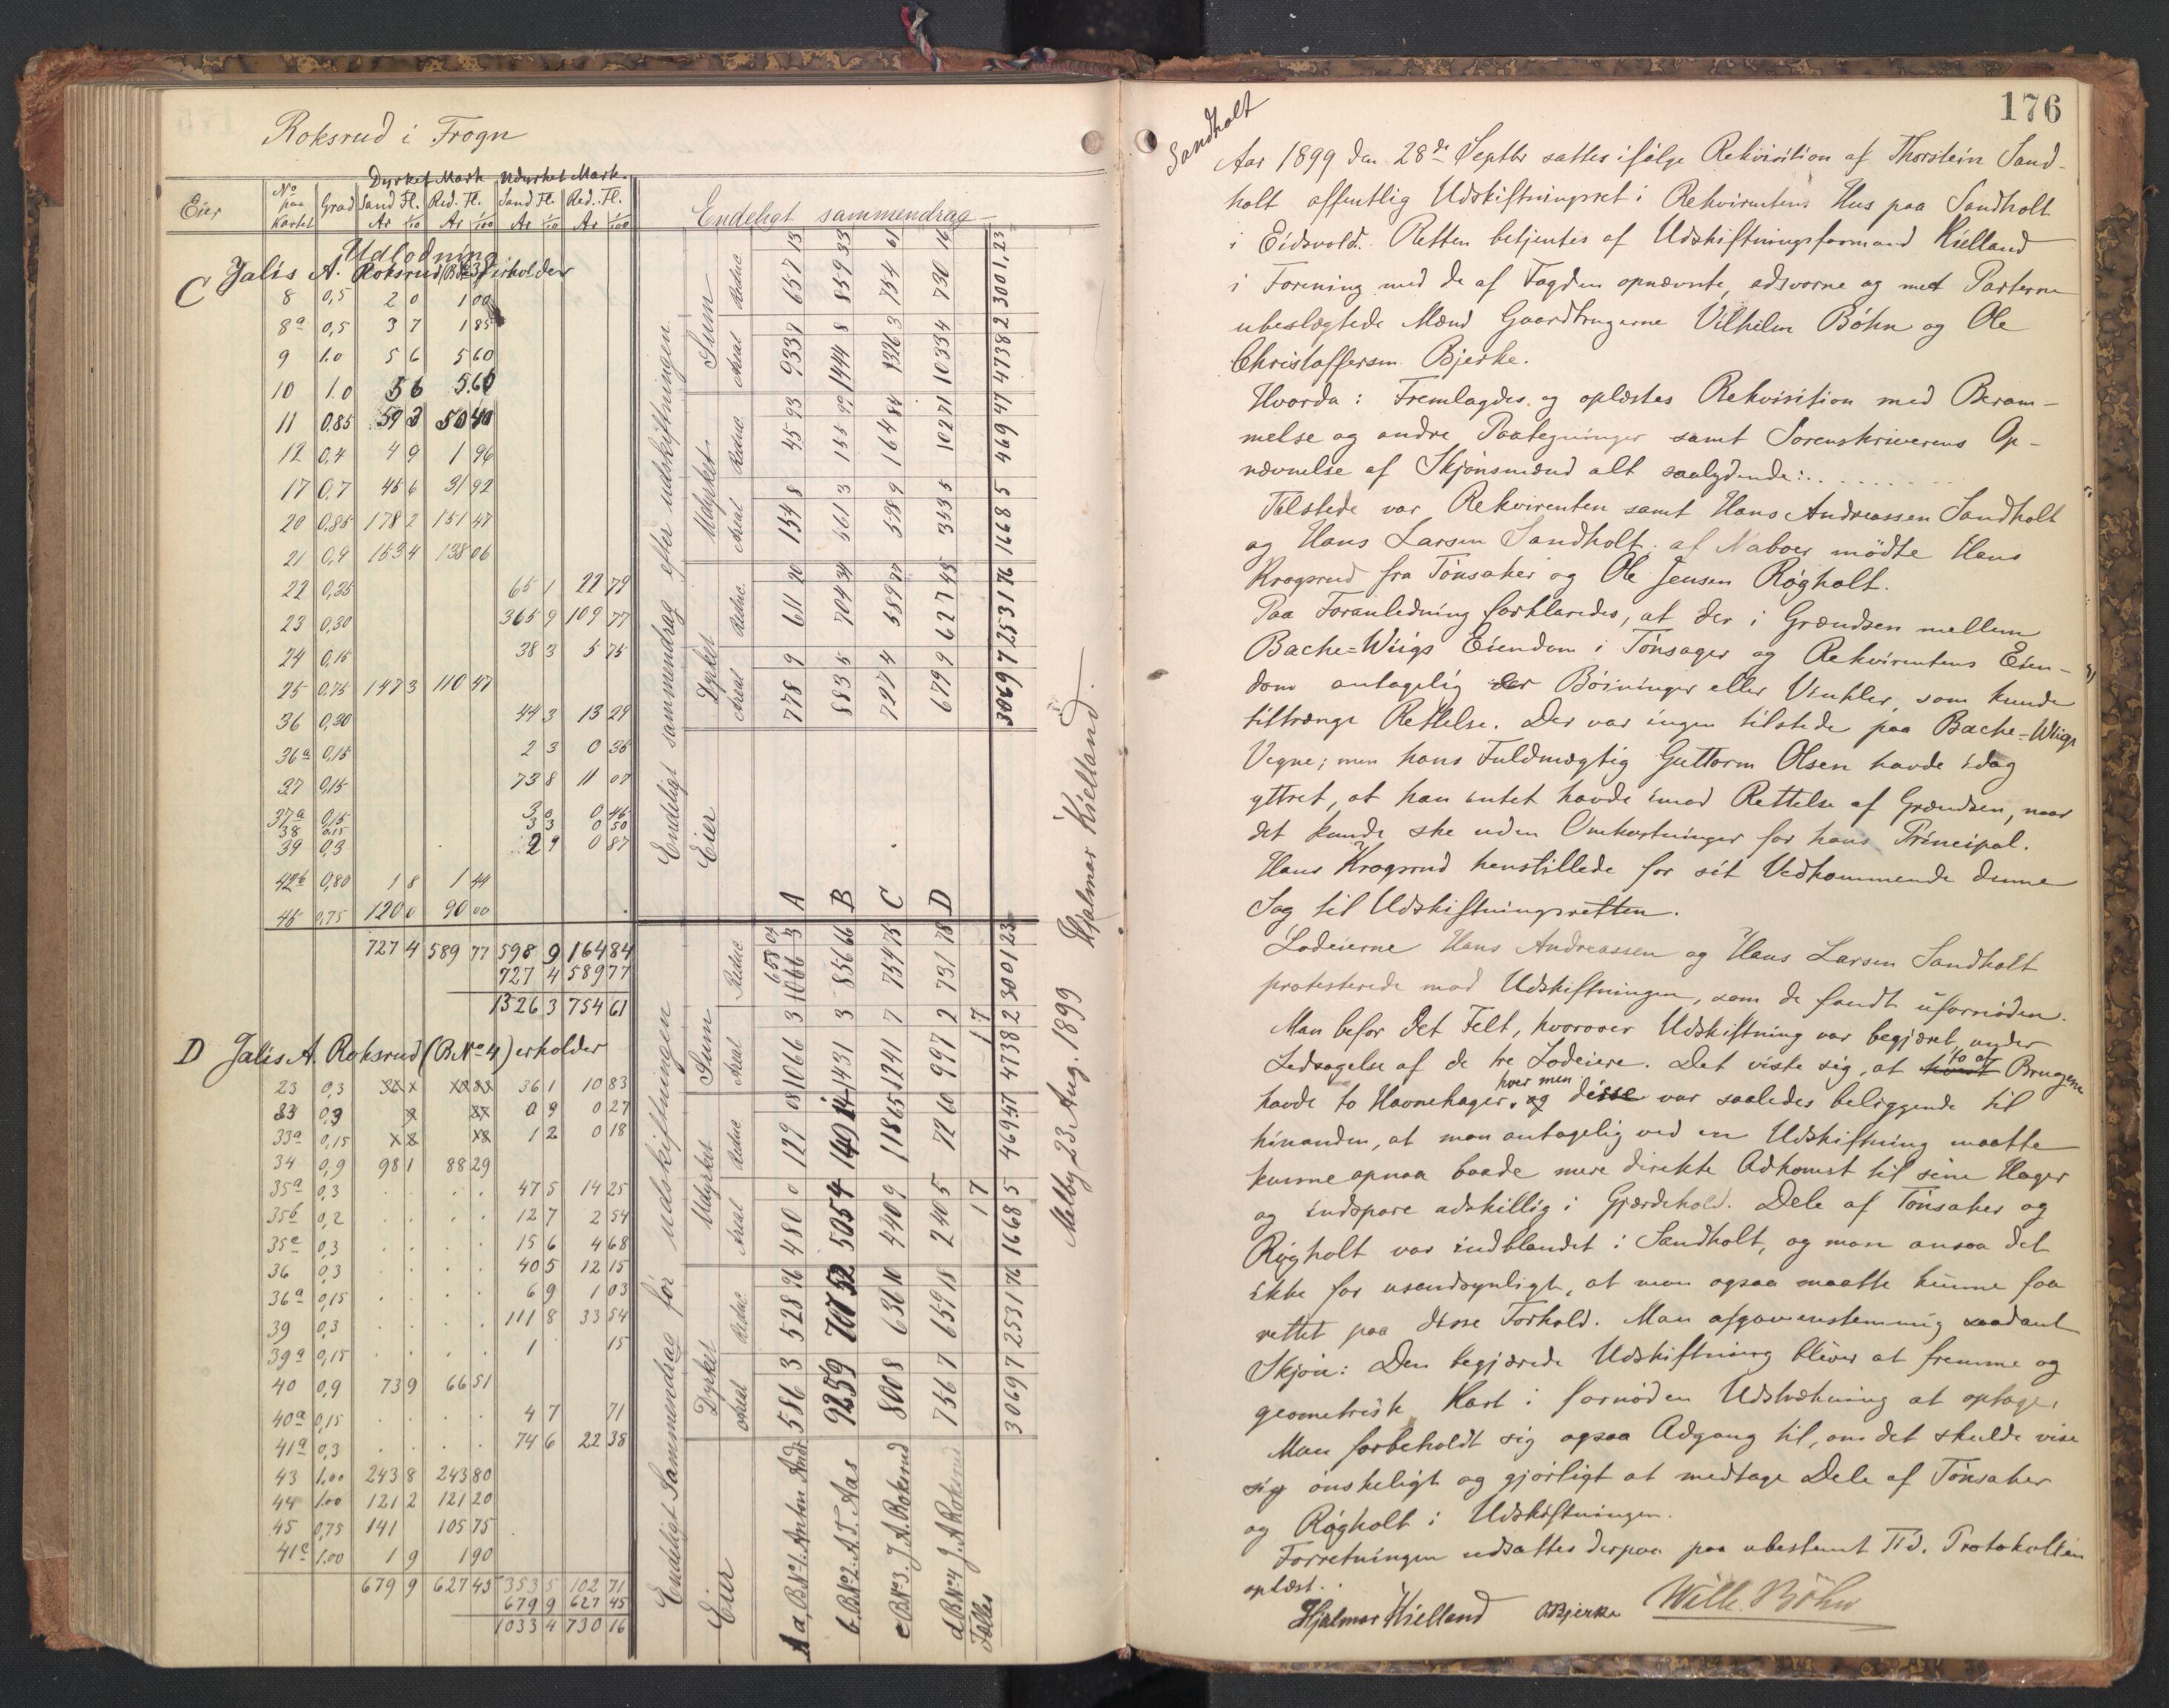 Roksrud i Frogn
Dyrket Mark. Udyrket Mark.
Eier No paa Kartet Grad Sand Fl. Red. Fl. Sand Fl. Red. Fl.
Ar 1/10 Ar 1/100 Ar 1/10 Ar 1/100
Udlodning
C Jalis A. Roksrud (BNo 3) erholder
8 0,5 2 0 1 00
8a 0,5 3 7 1 85
9 1.0 5 6 5 60
10 1.0 5 6 5.60
11 0.85 59 3 50 40
12 0,4 4 9 1 96
17 0,7 45 6 31 92
20 0,85 178 2 151 47
21 0,9 153 4 138 06
22 0,35 65 1 22 79
23 0,30 365 9 109 77
24 0,15 38 3 5 75
25 0,75 147 3 110 47
36 0,30 44 3 13 29
36a 0,15 2 3 0 35
37 0,15 73 8 11 07
37a 0,15 3 0 0 45
38 0,15 3 3 0 50
39 0,3 2 9 0 87
42b 0,80 1 8 1 44
45 0,75 120 0 90 00
727 4 589 77 598 9 164 84
727 4 589 77
1326 3 754 61
D Jalis A. Roksrud (BNo 4) erholder
23 0,3 36 1 10 83
33 0,3 0 9 0 27
33a 0,15 1 2 0 18
34 0,9 98 1 88 29
35a 0,3 47 5 14 25
35b 0,2 12 7 2 54
35c 0,3 15 6 4 68
36 0,3 40 5 12 15
36a 0,15 6 9 1 03
39 0,3 111 8 33 54
39a 0,15 1 15
40 0,9 73 9 66 51
40a 0,15 4 7 71
41a 0,3 74 6 22 38
43 1.00 243 8 243 80
44 1.00 121 2 121 20
45 0,75 141 105 75
41c 1.00 1 9 1 90
679 9 627 45 353 5 102 71
679 9 627 45
1033 4 730 16
Endeligt sammendrag
Endeligt Sammendrag før udskiftningen
Eier Dyrket Udyrket Sum
Areal Reduc Areal Reduc Areal Reduc
a, BNo 1. Anton Andr. 586 3 528 96 480 0 129 08 1066 3 658 04
b. BNo 2. A.T. Aas 925 9 707 52 505 4 149 14 1431 3 856 66
c BNo 3. J.A. Roksrud 800 8 636 10 440 9 118 65 1241 7 754 75
d BNo 4 J.A Roksrud 756 7 659 18 240 5 72 60 997 2 731 78
Fælles 1 7 1 7
3069 7 2531 76 1668 5 469 47 4738 2 3001 23
Endeligt sammendrag efter udskiftningen
Eier Dyrket Udyrket Sum
Areal Reduc. Areal Reduc Areal Reduc
A 778 9 611 20 154 8 45 93 933 7 657 13
B 883 5 704 34 561 3 155 99 1444 8 859 33
C 727 4 589 77 598 9 164 84 1326 3 754 61
D 679 9 627 45 353 5 102 71 1033 4 730 16
3069 7 2531 76 1668 5 469 47 4738 2 3001,23
Melby 23 Aug. 1899 Hjalmar Kielland.
176
Sandholt
Aar 1899 den 28de Septbr sattes ifølge Rekvisition af Thorstein Sand-
holt offentlig Udskiftningsret i Rekvirentens Hus paa Sandholt
i Eidsvold. Retten betjentes af Udskiftningsformand Kielland
i Forening med de af Fogden opnævnte, edsvorne og med Parterne
ubeslægtede Mænd Gaardbrugerne Vilhelm Bøhn og Ole
Christoffersen Bjerke.
Hvorda: Fremlagdes og oplæstes Rekvisition med Beram-
melse og andre Paategninger samt Sorenskriverens Op-
nævnelse af Skjønsmænd alt saalydende: . . . . . .
Tilstede var Rekvirenten samt Hans Andreassen Sandholt
og Hans Larsen Sandholt; af Naboer mødte Hans
Krogsrud fra Tønsaker og Ole Jensen Røgholt.
Paa Foranledning forklaredes, at der i Grændsen mellem
Bache=Wiigs Eiendom i Tønsager og Rekvirentens Eien-
dom antagelig er Bøininger eller Vinkler, som kunde
tiltrænge Rettelse. Der var ingen tilstede paa Bache=Wiigs
Vegne; men hans Fuldmægtig Guttorm Olsen havde idag
yttret, at han intet havde imod Rettelse af Grændsen, naar
det kunde ske uden Omkostninger for hans Principal.
Hans Krogsrud henstillede for sit Vedkommende denne
Sag til Udskiftningsretten.
Lodeierne Hans Andreassen og Hans Larsen Sandholt
protesterede mod Udskiftningen, som de fandt ufornøden.
Man befor det Felt, hvorover Udskiftning var begjæret, under
Ledsagelse af de tre Lodeiere. Det viste sig, at to af Brugene
havde to Havnehager hver men disse var saaledes beliggende til
hinanden, at man antagelig ved en Udskiftning maatte
kunne opnaa baade mere direkte Adkomst til sine Hager
og indspare adskillig i Gjærdehold. Dele af Tønsaker og
Røgholt var indblandet i Sandholt, og man ansaa det
ikke for usandsynligt, at man ogsaa maatte kunne faa
rettet paa disse Forhold. Man afgav enstemmig saadant
Skjøn: Den begjærede Udskiftning bliver at fremme og
geometrisk Kart i fornøden Udstrækning at optage.
Man forbeholdt sig ogsaa Adgang til, om det skulde vise
sig ønskeligt og gjørligt at medtage Dele af Tønsaker
og Røgholt i Udskiftningen.
Forretningen udsattes derpaa paa ubestemt Tid. Protokollen
oplæst.
Hjalmar Kielland OBjerke Wilh. Bøhn